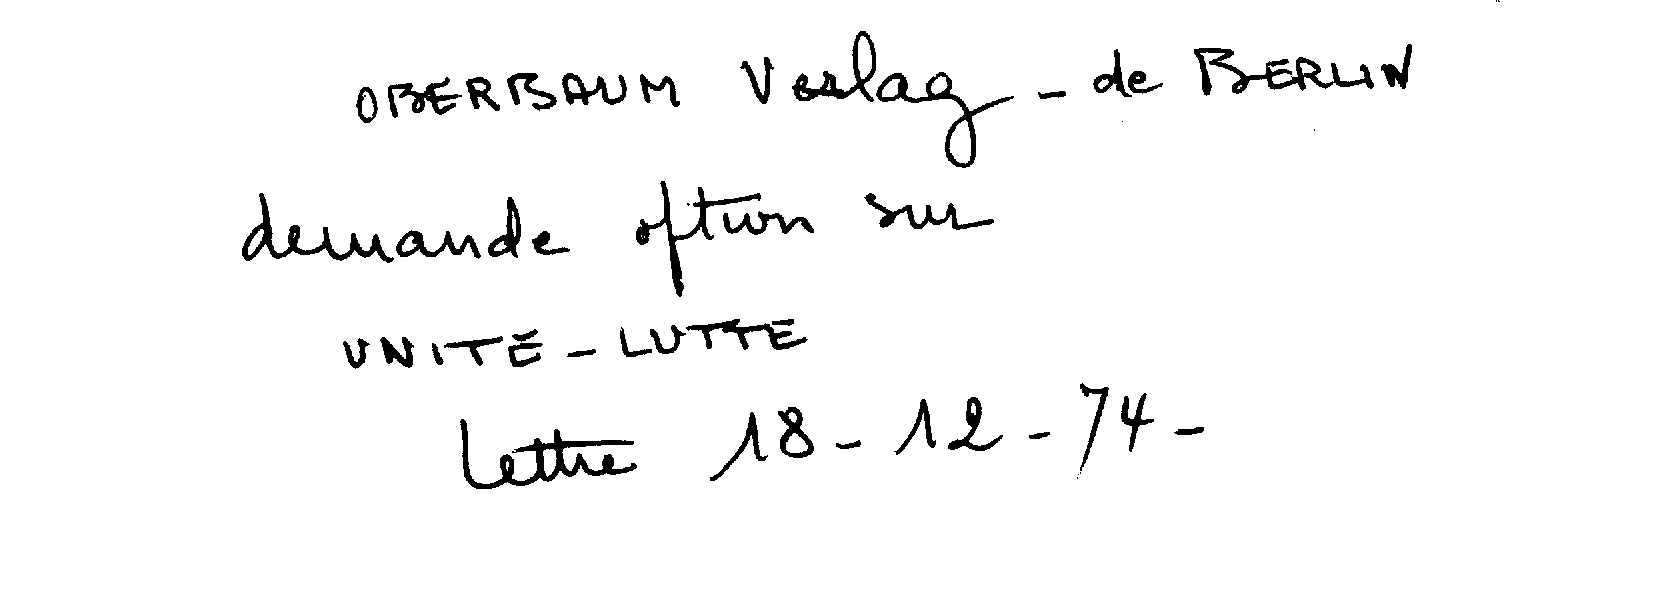 OBERBAUM Verlag - de BERLIN
demande option sur
UNITÉ - LUTTE
Lettre 18 - 12 - 74 -